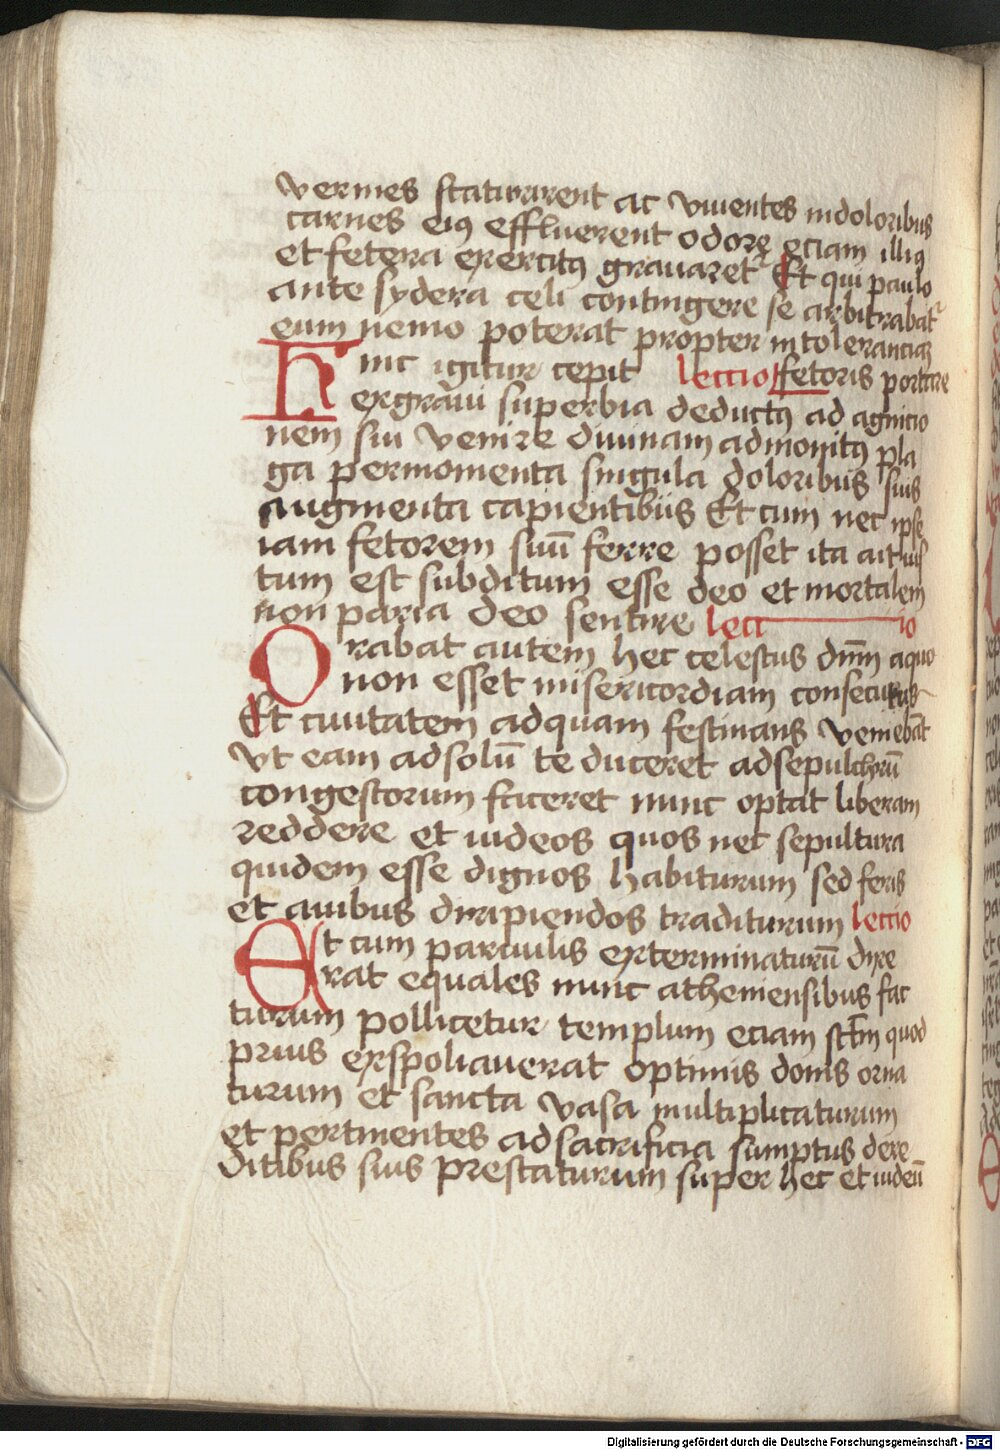 vermes scaturirent ac viuentes in doloribus
carnes eiꝰ effluerent odorę eciam illiꝰ
et fetera exercitꝰ grauaret᷑ Et qui paulo
ante sydera celi contingere se arbitrabat᷑
eum nemo poterat propter intolerancia
hinc igitur cepit lectio fetoris portare
ex graui superbia deductꝰ ad agnicio
nem sui venire diuinam admonitꝰ pla
ga per momenta singula doloribus suis
augmenta capientibus Et cum nec ipse
iam fetorem suū ferre posset ita ait ius
tum est subditum esse deo et mortalem
non paria deo sentire lectio
Orabat autem hec celestus dn̄m a quo
non esset misericordiam consecuturus
Et ciuitatem ad quam festinans veniebāt
vt eam ad solū te duceret ad sepulchrū
congestorum faceret nunc optat liberam
reddere et iudeos quos nec sepultura
quidem esse dignos habiturum sed feris
et auibus diripiendos traditurum lectio
Et cum paruulis exterminaturū dixe
rat equales nunc atheniensibus fac
turum pollicetur templum eciam sc̄tm quod
prius exspoliauerat optimis donis orna
turum et sancta vasa multiplicaturum
et pertinentes ad sacrificia sumptus de re
ditibus suis prestaturum super hec et iudeū
Digitalisierung gefördert durch die Deutsche Forschungsgemeinschaft - DFG